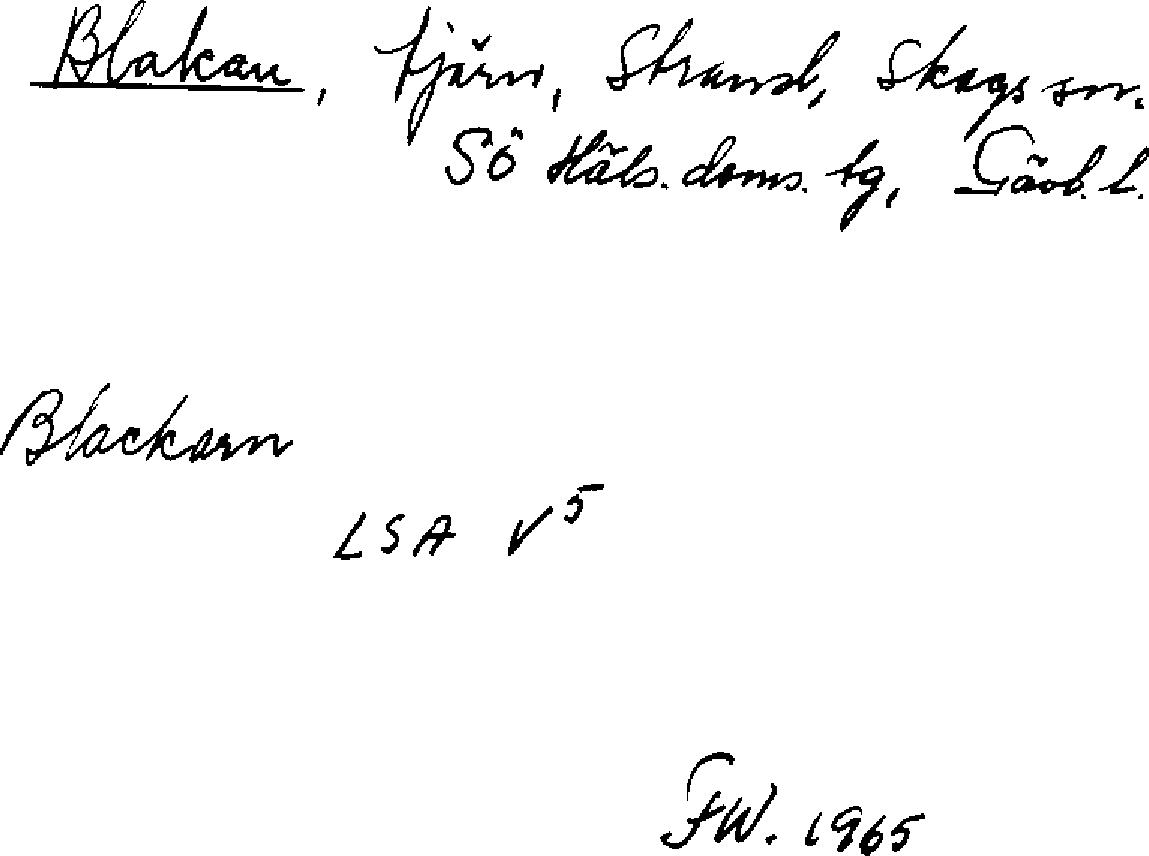 Blakan, tjärn, Strand, Skogs sn.
Sö Häls. doms. tg, Gävl. l.
Blackarn
LSA V⁵
FW. 1965